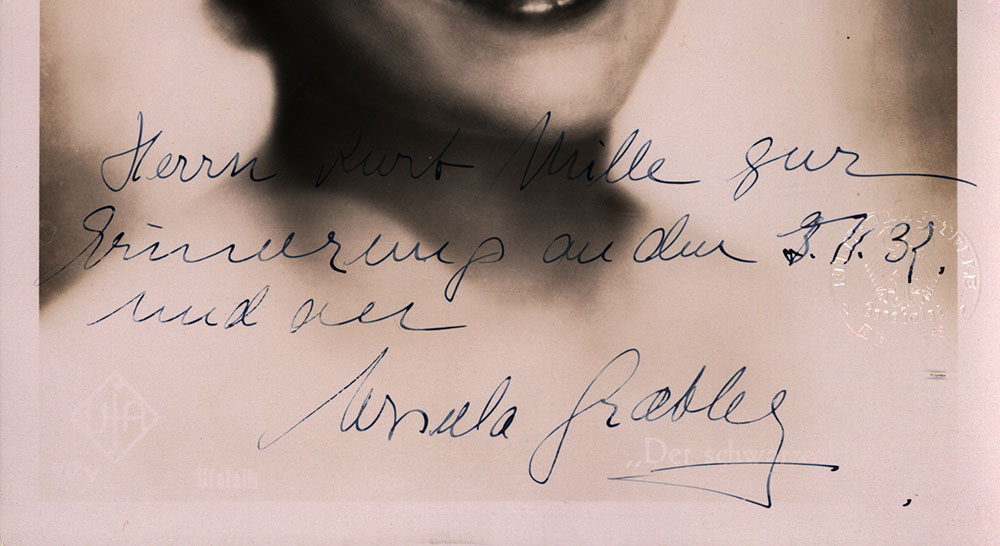 Herrn Kurt Mille zur
Erinnerung an den
und an
Ursula Grabley
Ufa
"Der schwarze